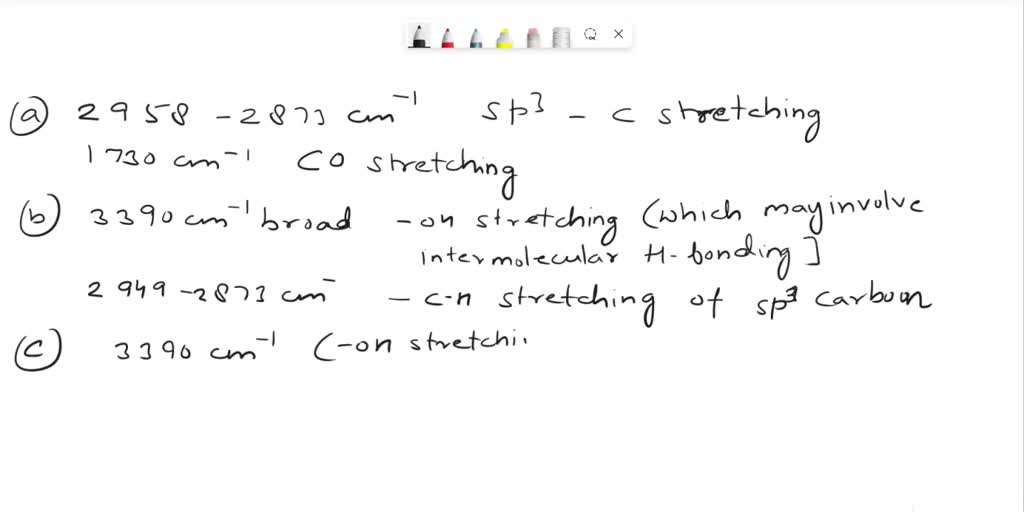 (a) 2958 - 2873 cm⁻¹ sp³ - C stretching
1730 cm⁻¹ CO stretching
(b) 3390 cm⁻¹ broad - on stretching (which may involve
intermolecular H-bonding]
2949 - 2873 cm⁻ - c-n stretching of sp³ carbon
(c) 3390 cm⁻¹ (-on stretchi